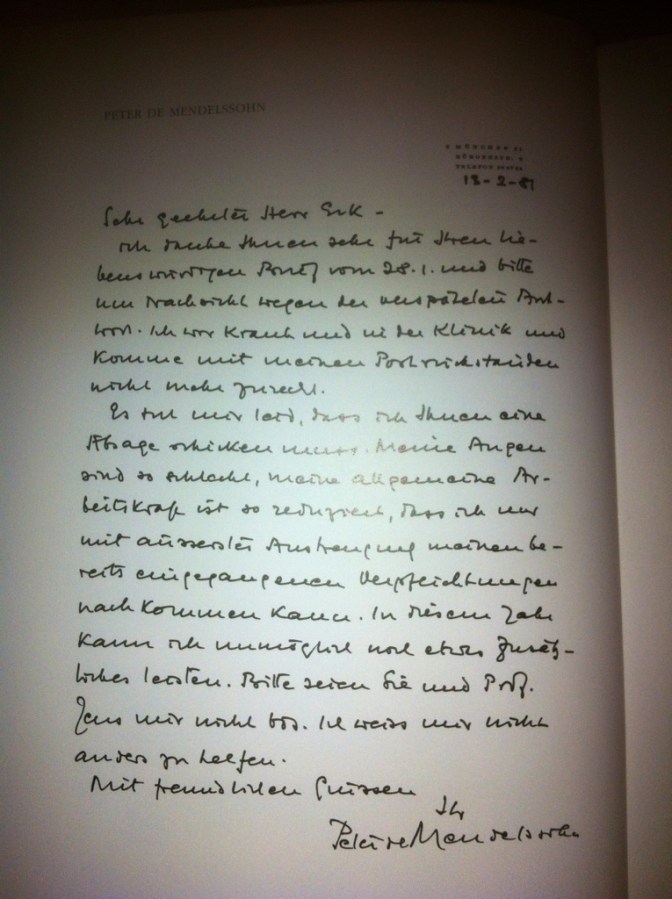 PETER DE MENDELSSOHN
8 MÜNCHEN 81
13-2-81
Sehr geehrter Herr Erk -
ich danke Ihnen sehr für Ihren lie-
benswürdigen Brief vom 28.1. und bitte
um Nachsicht wegen der verspäteten Ant-
wort. Ich war krank und in der Klinik und
komme mit meinen Postrückständen
nicht mehr zurecht.
Es tut mir leid, dass ich Ihnen eine
Absage schicken muss. Meine Augen
sind so schlecht, meine allgemeine Ar-
beitskraft ist so reduziert, dass ich nur
mit äusserster Anstrengung meinen be-
reits eingegangenen Verpflichtungen
nachkommen kann. In diesem Jahr
kann ich unmöglich noch etwas Zusätz-
liches leisten. Bitte seien Sie und Prof.
Jens mir nicht bös. Ich weiss mir nicht
anders zu helfen.
Mit freundlichen Grüssen
Ihr
Peter de Mendelssohn